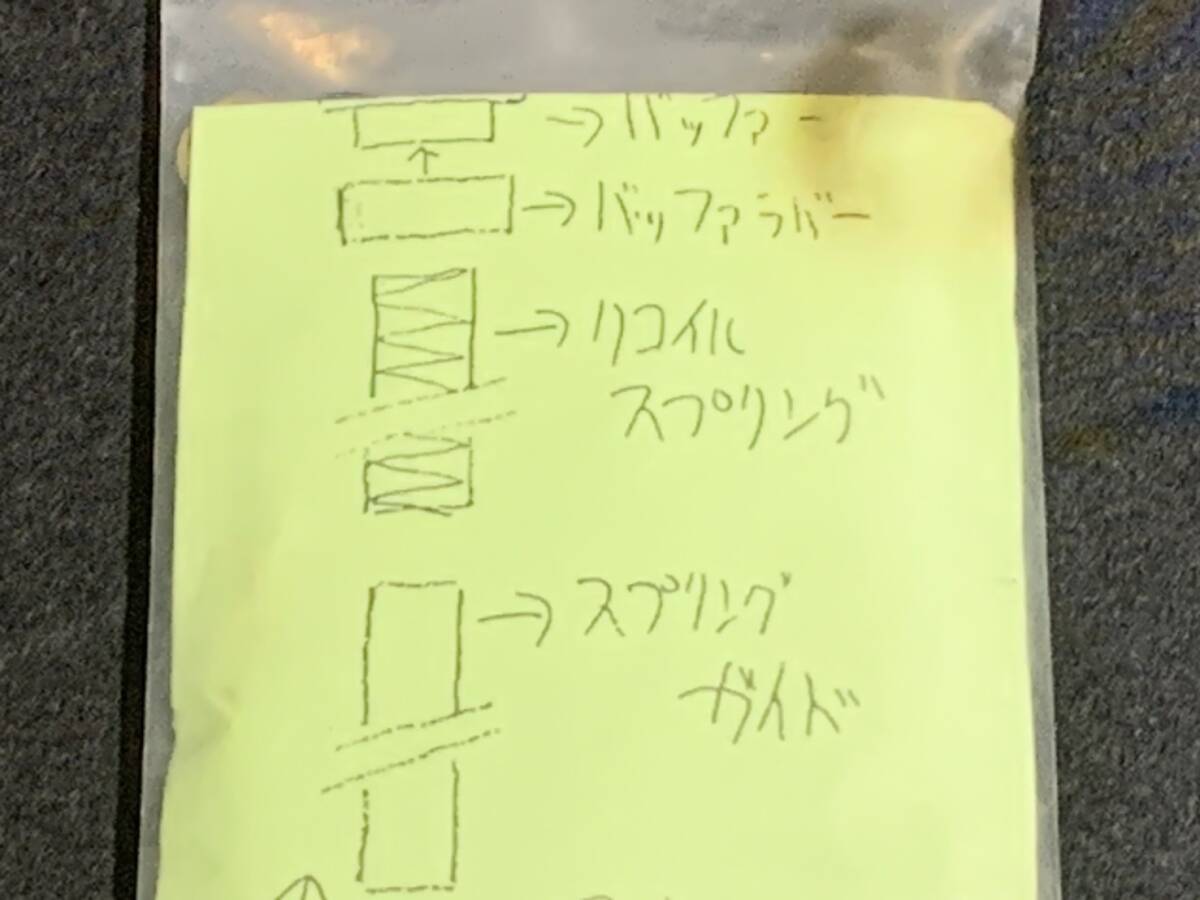 →バッファー
→バッファラバー
→リコイル
スプリング
→スプリング
ガイド